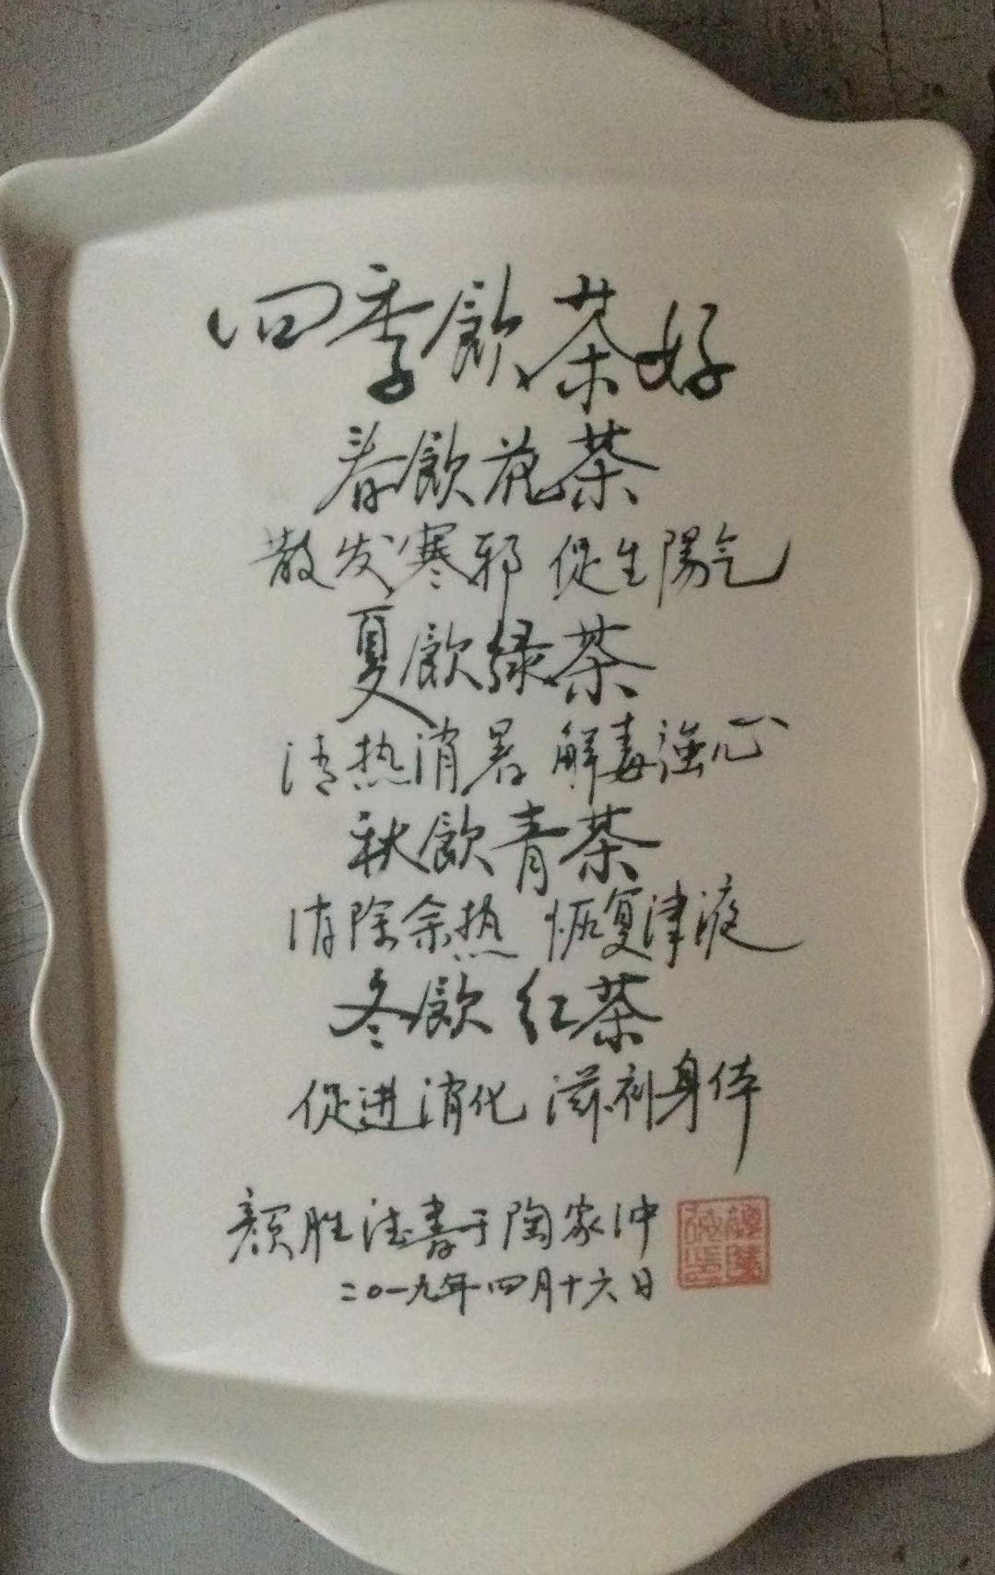 四季飲茶好
春飲花茶
散发寒邪 促生陽气
夏飲绿茶
清热消暑 解毒強心
秋飲青茶
清除余热 恢复津液
冬飲红茶
促进消化 滋补身体
颜胜法書于陶家冲
二〇一九年四月十六日